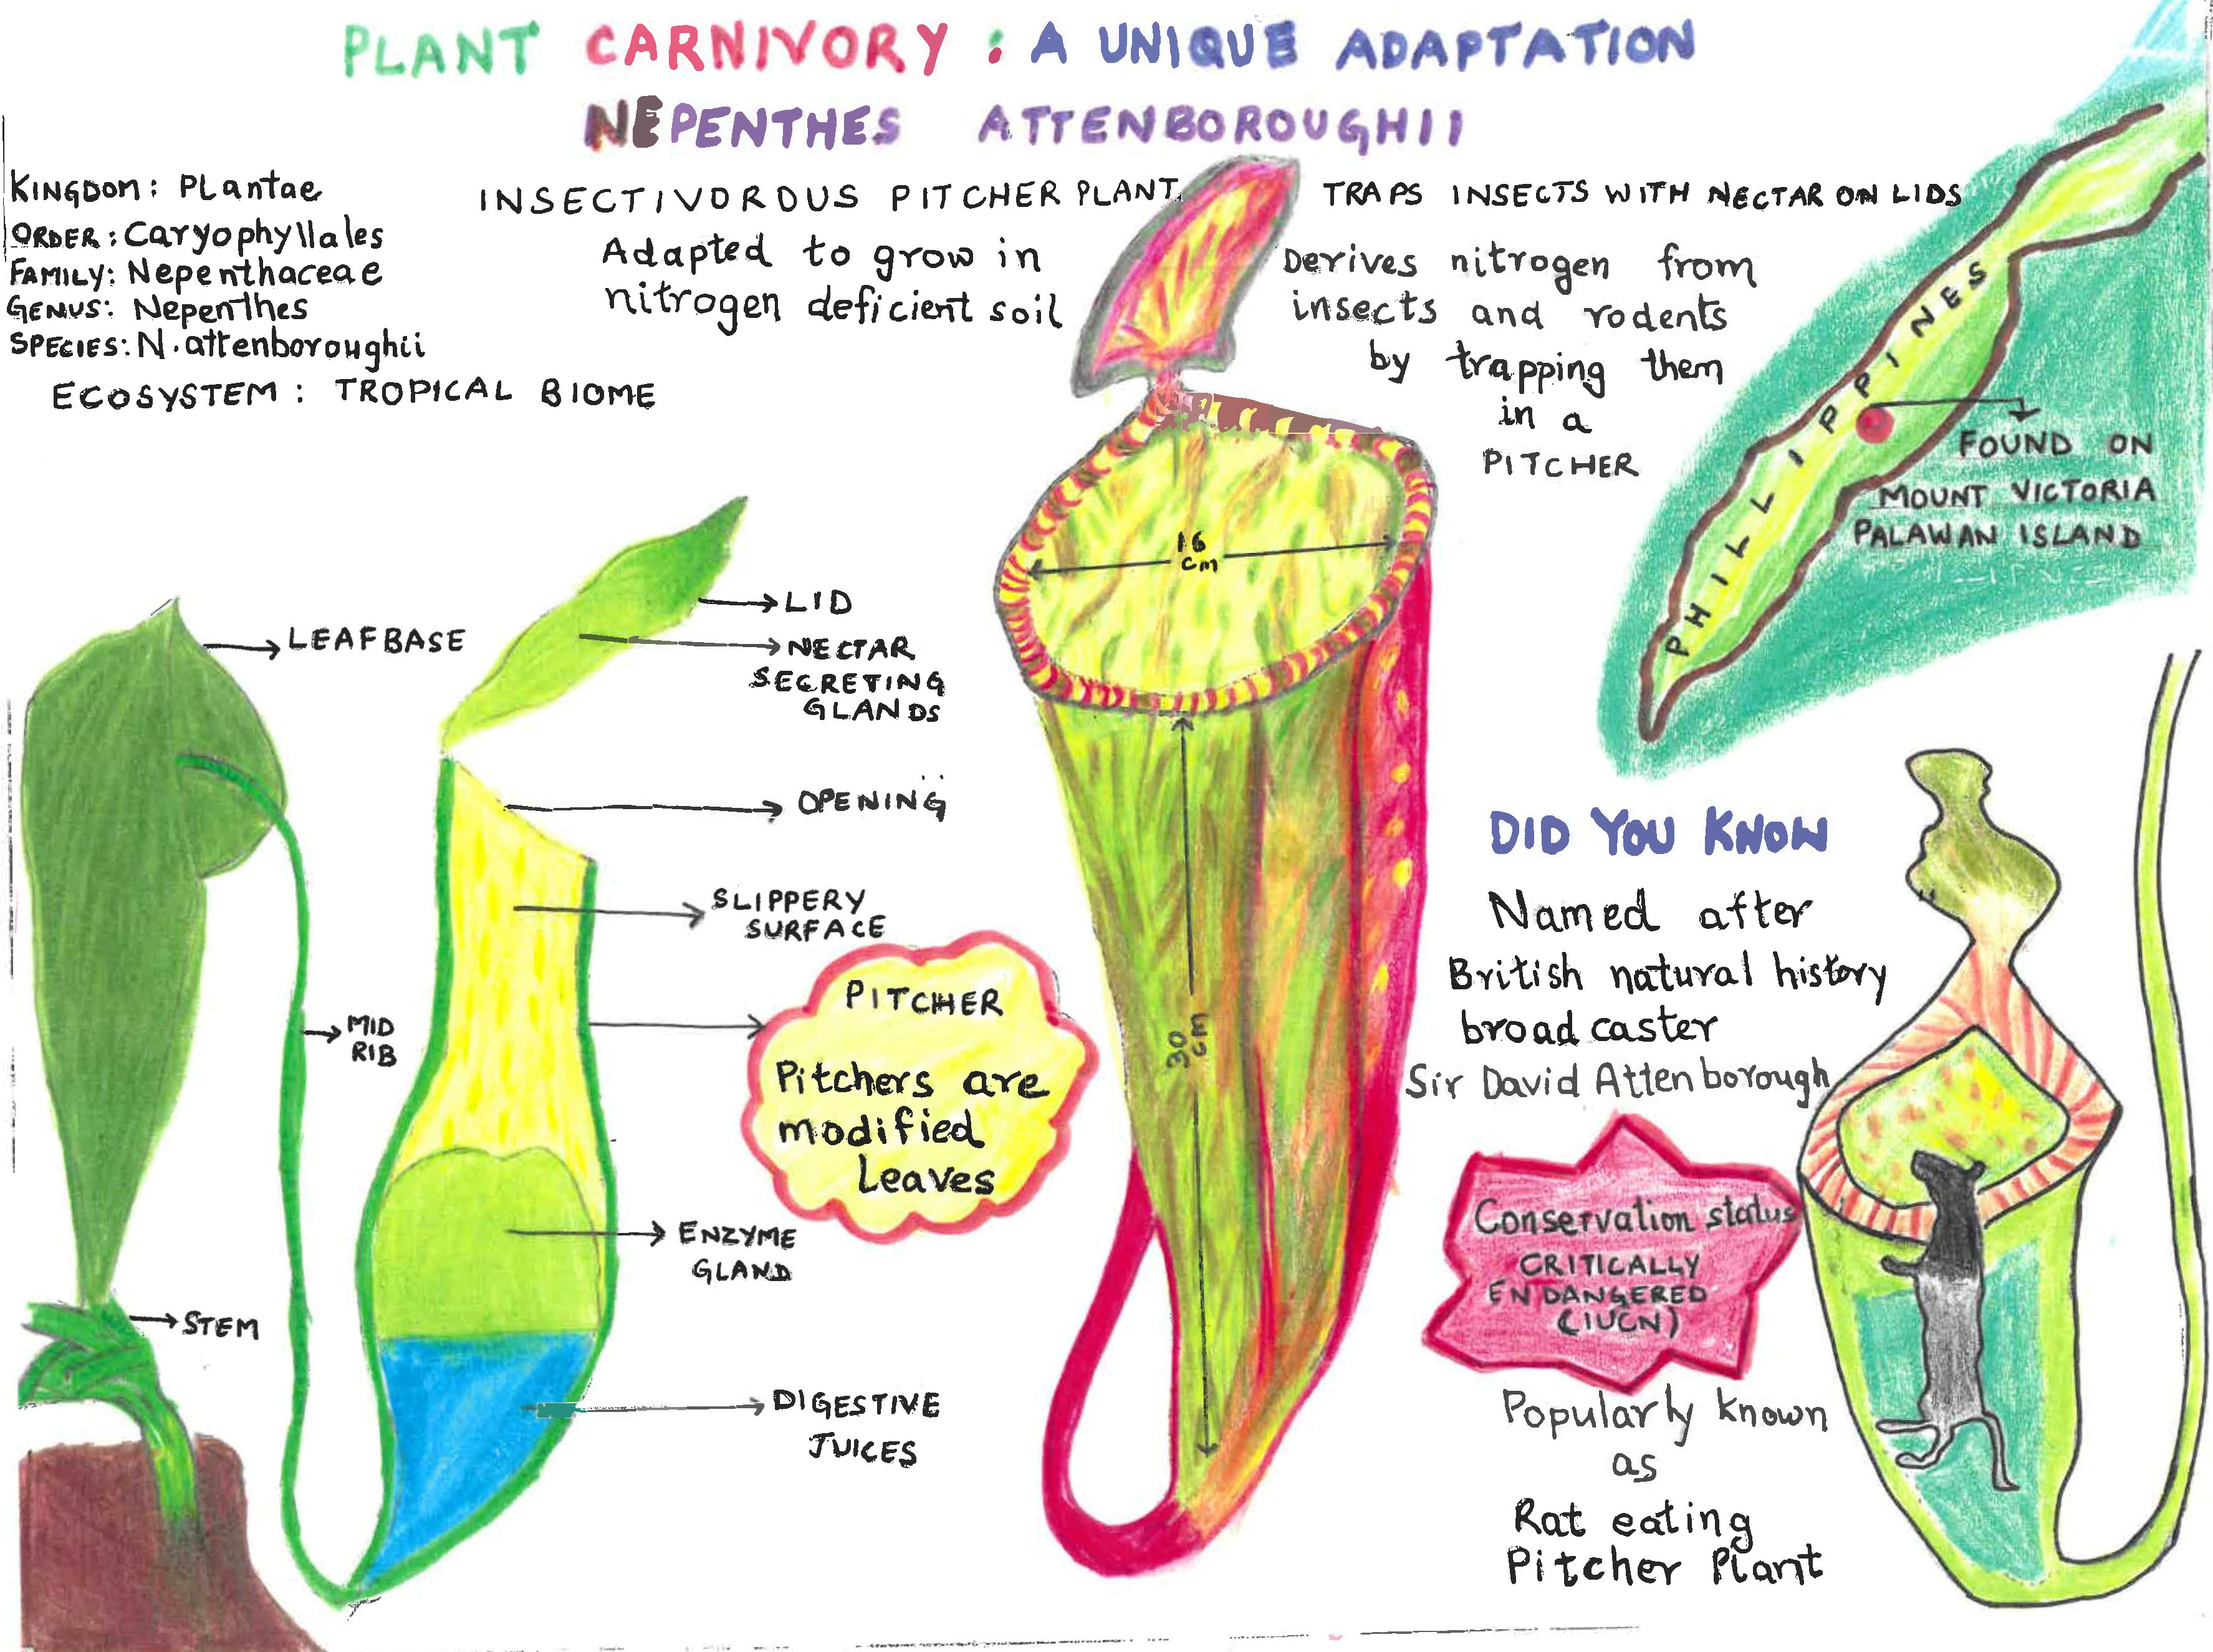 PLANT CARNIVORY : A UNIQUE ADAPTATION
NEPENTHES ATTENBOROUGHII
KINGDOM: PLantae
ORDER: Caryophyllales
FAMILY: Nepenthaceae
GENUS: Nepenthes
SPECIES: N. attenboroughii
ECOSYSTEM : TROPICAL BIOME
INSECTIVOROUS PITCHER PLANT
Adapted to grow in
nitrogen deficient soil
TRAPS INSECTS WITH NECTAR ON LIDS
Derives nitrogen from
insects and rodents
by trapping them
in a
PITCHER
PHILLIPPINES
FOUND ON
MOUNT VICTORIA
PALAWAN ISLAND
LEAFBASE
LID
NECTAR
SECRETING
GLANDS
OPENING
SLIPPERY
SURFACE
MID
RIB
PITCHER
Pitchers are
modified
Leaves
ENZYME
GLAND
STEM
DIGESTIVE
JUICES
16
cm
30
cm
DID YOU KNOW
Named after
British natural history
broad caster
Sir David Attenborough
Conservation status
CRITICALLY
ENDANGERED
(IUCN)
Popularly known
as
Rat eating
Pitcher Plant